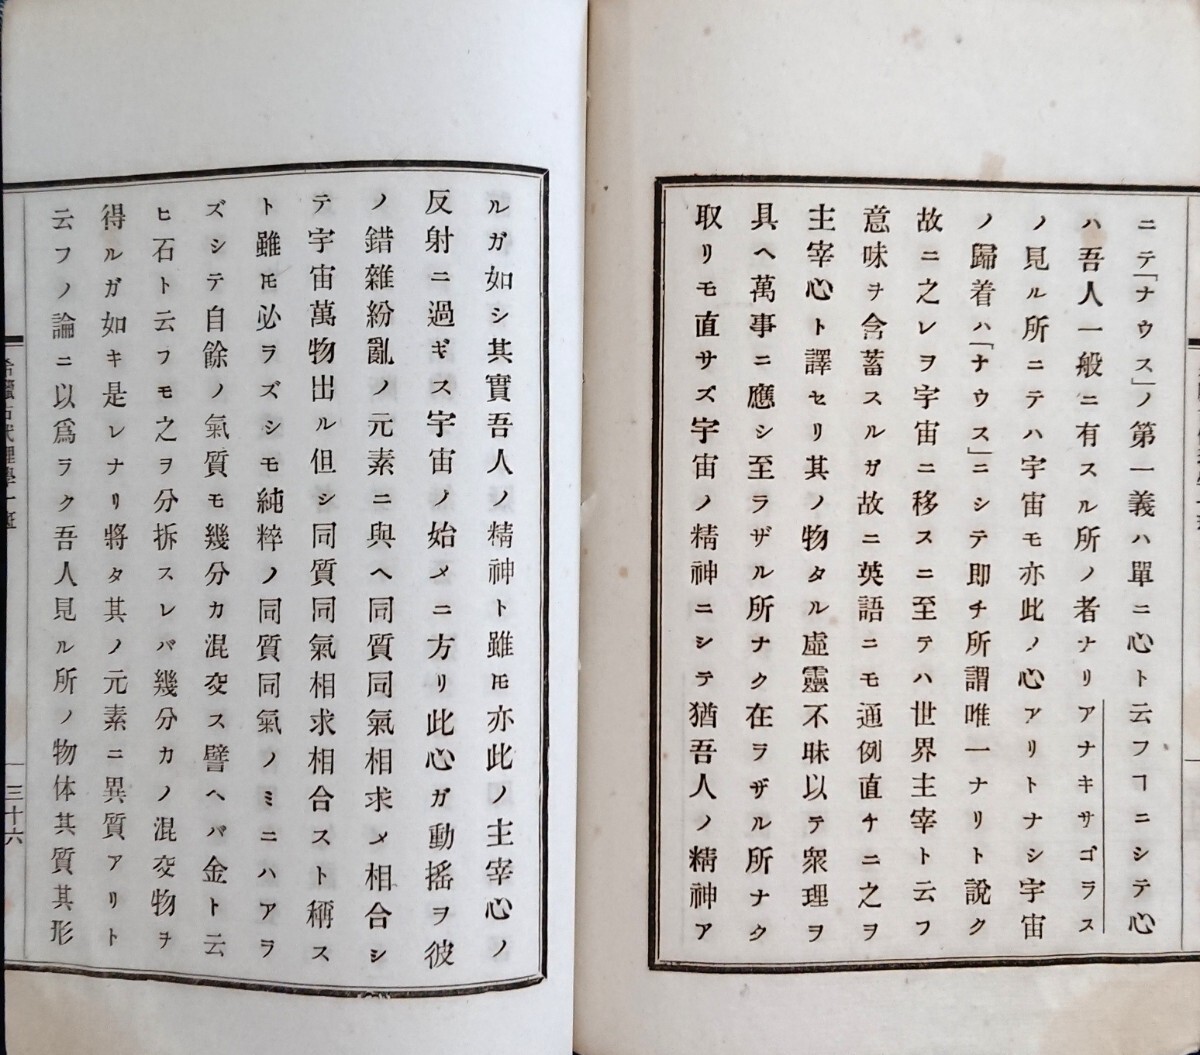 ニテ「ナウス」ノ第一義ハ單ニ心ト云フヿニシテ心
ハ吾人一般ニ有スル所ノ者ナリアナキサゴラス
ノ見ル所ニテハ宇宙モ亦此ノ心アリトナシ宇宙
ノ歸着ハ「ナウス」ニシテ即チ所謂唯一ナリト說ク
故ニ之レヲ宇宙ニ移スニ至テハ世界主宰ト云フ
意味ヲ含蓄スルガ故ニ英語ニモ通例直チニ之ヲ
主宰心ト譯セリ其ノ物タル虛靈不昧以テ衆理ヲ
具ヘ萬事ニ應シ至ラザル所ナク在ラザル所ナク
取リモ直サズ宇宙ノ精神ニシテ猶吾人ノ精神ア
ルガ如シ其實吾人ノ精神ト雖モ亦此ノ主宰心ノ
反射ニ過ギス宇宙ノ始メニ方リ此心ガ動搖ヲ彼
ノ錯雜紛亂ノ元素ニ與ヘ同質同氣相求メ相合シ
テ宇宙萬物出ル但シ同質同氣相求相合スト稱ス
ト雖モ必ラズシモ純粹ノ同質同氣ノミニハアラ
ズシテ自餘ノ氣質モ幾分カ混交ス譬ヘバ金ト云
ヒ石ト云フモ之ヲ分拆スレバ幾分カノ混交物ヲ
得ルガ如キ是レナリ將タ其ノ元素ニ異質アリト
云フノ論ニ以爲ラク吾人見ル所ノ物体其質其形
希臘古代理學一斑
三十六